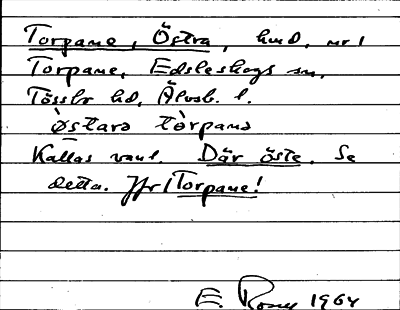 Torpane, Östra, hmd. nr 1
Torpane, Edsleskogs sn.
Tössbo hd, Älvsb. l.
òstarə tòrpanə
Kallas vanl. Där öste. Se
detta. Jfr Torpane!
E. Rosen 1964